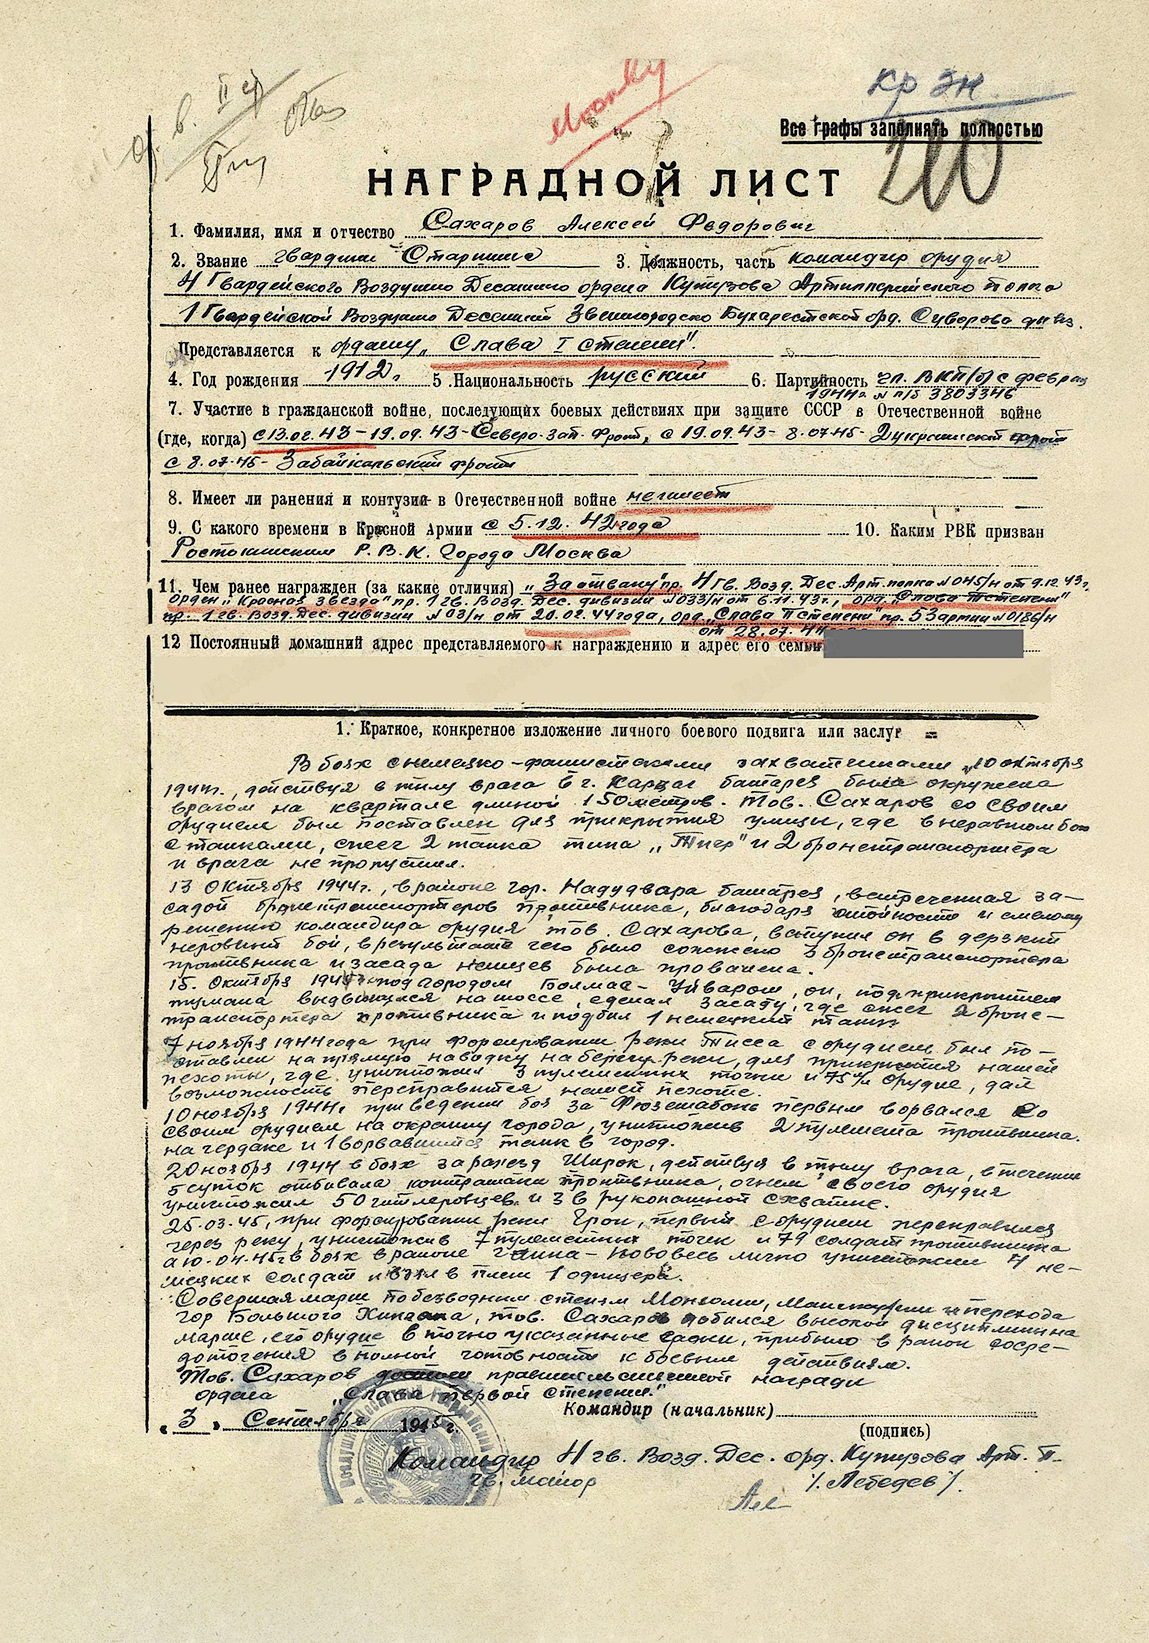 Кр Зн.
Все графы заполнять полностью
200
НАГРАДНОЙ ЛИСТ
1. Фамилия, имя и отчество Сахаров Алексей Федорович
2. Звание гвардии Старшина 3. Должность, часть командир орудия
4 Гвардейского Воздушно Десантного ордена Кутузова Артиллерийского полка
1 Гвардейской Воздушно Десантной Звенигородско Бухарестской орд. Суворова дивиз.
Представляется к ордену „Слава I степени".
4. Год рождения 1912г. 5. Национальность русский 6. Партийность чл. ВКП(б) с феврал
1944г. № п/б 3803346
7. Участие в гражданской войне, последующих боевых действиях при защите СССР в Отечественной войне
(где, когда) с 13.02.43 – 19.09.43 – Северо-Зап. Фронт, с 19.09.43 – 8.07.45 – 2 Украинский фронт
с 8.07.45 – Забайкальский фронт
8. Имеет ли ранения и контузии в Отечественной войне не имеет
9. С какого времени в Красной Армии с 5.12.42 года 10. Каким РВК призван
Ростокинским Р.В.К. Города Москва
11. Чем ранее награжден (за какие отличия) „За отвагу" пр. 4 Гв. Возд. Дес. Арт. полка № 045/н от 9.12.43г.
орден „Красная Звезда" пр. 1 гв. Возд. Дес. дивизии № 033/н от 6.11.43г., орд. „Слава III степени"
пр. 1 гв. Возд. Дес. дивизии № 03/н от 20.02.44 года, орд. „Слава II степени" пр. 53 армии № 0186/н
от 28.07.44
12 Постоянный домашний адрес представляемого к награждению и адрес его семьи
1. Краткое, конкретное изложение личного боевого подвига или заслуг
В боях с немецко-фашистскими захватчиками 10 октября
1944г., действуя в тылу врага в г. Карцаг батарея была окружена
врагом на квартале длиной 150 метров. Тов. Сахаров со своим
орудием был поставлен для прикрытия улицы, где в неравном бою
с танками, сжег 2 танка типа „Тигр" и 2 бронетранспортера
и врага не пропустил.
13 Октября 1944г., в районе гор. Надудвара батарея, встреченная за-
садой бронетранспортеров противника, благодаря стойкости и смелому
решению командира орудия тов. Сахарова, вступил он в дерзкий
неровный бой, в результате чего было сожжено 3 бронетранспортера
противника и засада немцев была провалена.
15. Октября 1945г. под городом Балмас-Уйварош, он, под прикрытием
тумана выдвинулся на шоссе, сделал засаду, где сжег 2 броне-
транспортера противника и подбил 1 немецкий танк
7 ноября 1944 года при форсировании реки Тисса с орудием был по-
ставлен на прямую наводку на берегу реки, для прикрытия нашей
пехоты, где уничтожил 3 пулеметных точки и 75 м/м орудие, дал
возможность переправится нашей пехоте.
10 ноября 1944г. при ведении боя за Фюзешабонь первым ворвался со
своим орудием на окраину города, уничтожив 2 пулемета противника.
на чердаке и 1 ворвавшийся танк в город.
20 ноября 1944 в боях за разъезд Широк, действуя в тылу врага, в течении
5 суток отбивала контратаки противника, огнем своего орудия
уничтожил 50 гитлеровцев и 3 в рукопашной схватке.
25.03.45, при форсировании реки Грон, первый с орудием переправился
через реку, уничтожив 7 пулеметных точек и 79 солдат противника
а 10.04.45г в боях в районе – Нововесь лично уничтожил 4 не-
мецких солдат и взял в плен 1 офицера.
Совершая марш по безводным степям Монголии, Манчжурии и перехода
гор Большого Хингана, тов. Сахаров добился высокой дисциплины на
марше, его орудие в точно указанные сроки, прибыло в район сосре-
доточения в полной готовности к боевым действиям.
Тов. Сахаров достоин правительственной награды
ордена „Слава первой степени."
Командир (начальник)
„3" Сентября 1945г.
(подпись)
Командир 4 гв. Возд. Дес. орд. Кутузова Арт. П.
гв. майор /. Лебедев /.